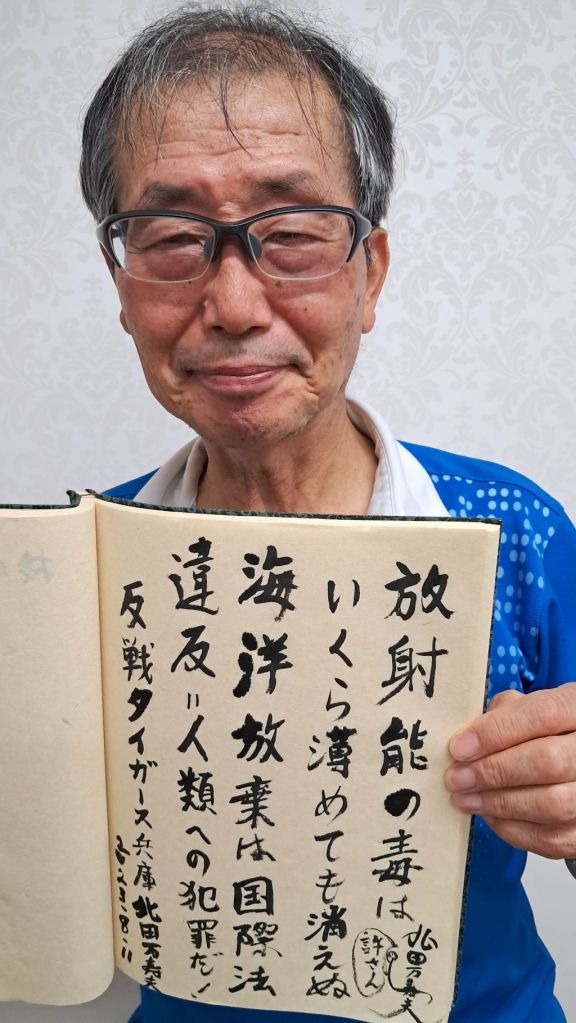 放射能の毒は
いくら薄めても消えぬ
許さん
海洋放棄は国際法
違反=人類への犯罪だ!
反戦タイガース兵庫 北田万寿夫
2023.8.11